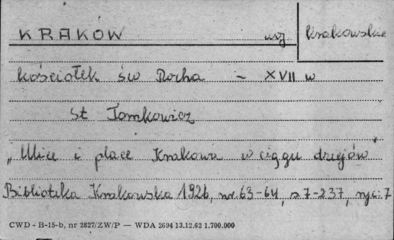 KRAKÓW woj krakowskie
kościołek św Rocha – XVII w
St Tomkowicz
„Ulice i place Krakowa w ciągu dziejów"
Biblioteka Krakowska 1926, nr. 63-64, s 7-237, ryc. 7
CWD - H-15-b, nr 2827/ZW/P — WDA 2694 13.12.62 1.700.000